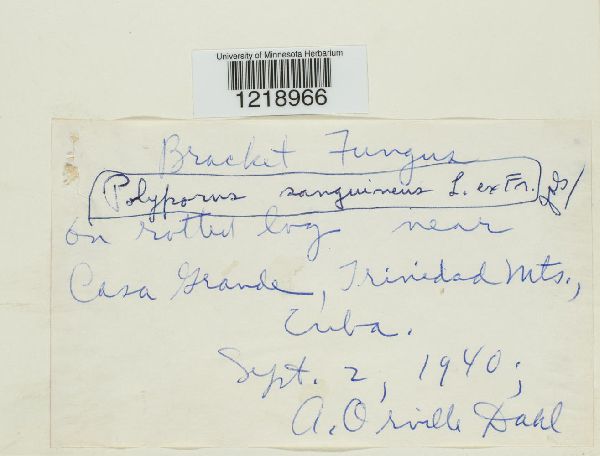 University of Minnesota Herbarium
1218966
Bracket Fungus
Polyporus sanguineus L. ex Fr.
on rotted log near
Casa Grande, Trinidad Mts.,
Cuba.
Sept. 2, 1940;
A. Orville Dahl